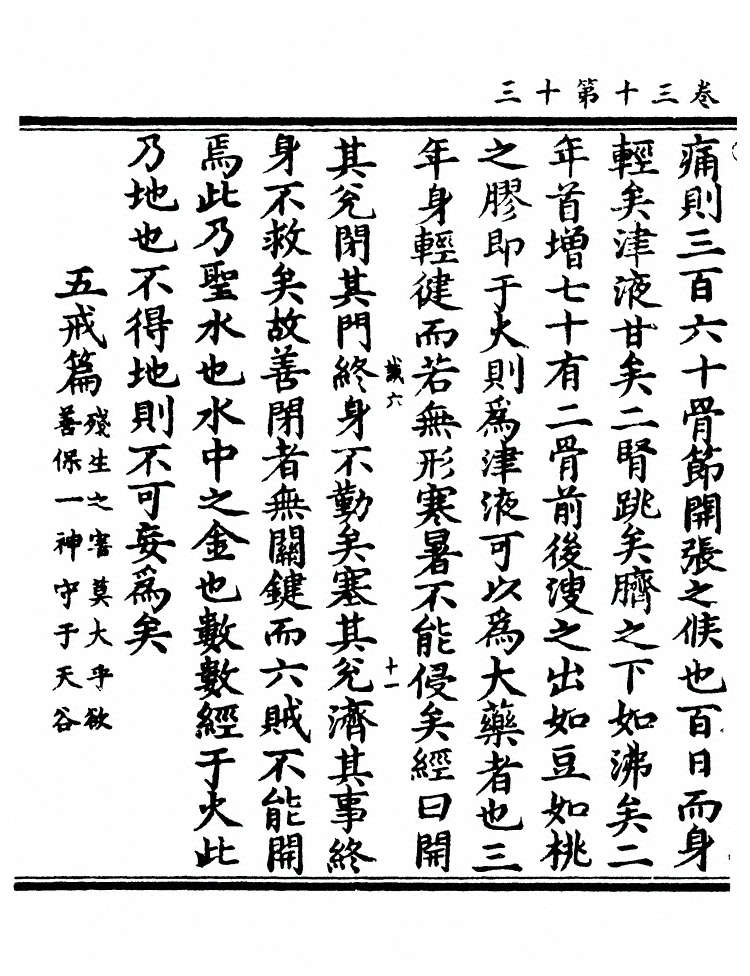 卷三十第十三
痛則三百六十骨節開張之候也百日而身
輕矣津液甘矣二腎跳矣臍之下如沸矣二
年首增七十有二骨前後溲之出如豆如桃
之膠即于火則爲津液可以爲大藥者也三
年身輕健而若無形寒暑不能侵矣經曰開
誠六
十一
其兌閉其門終身不勤矣塞其兌濟其事終
身不救矣故善閉者無關鍵而六賊不能開
焉此乃聖水也水中之金也數數經于火此
乃地也不得地則不可妄爲矣
五戒篇
殘生之害莫大乎欲
善保一神守于天谷